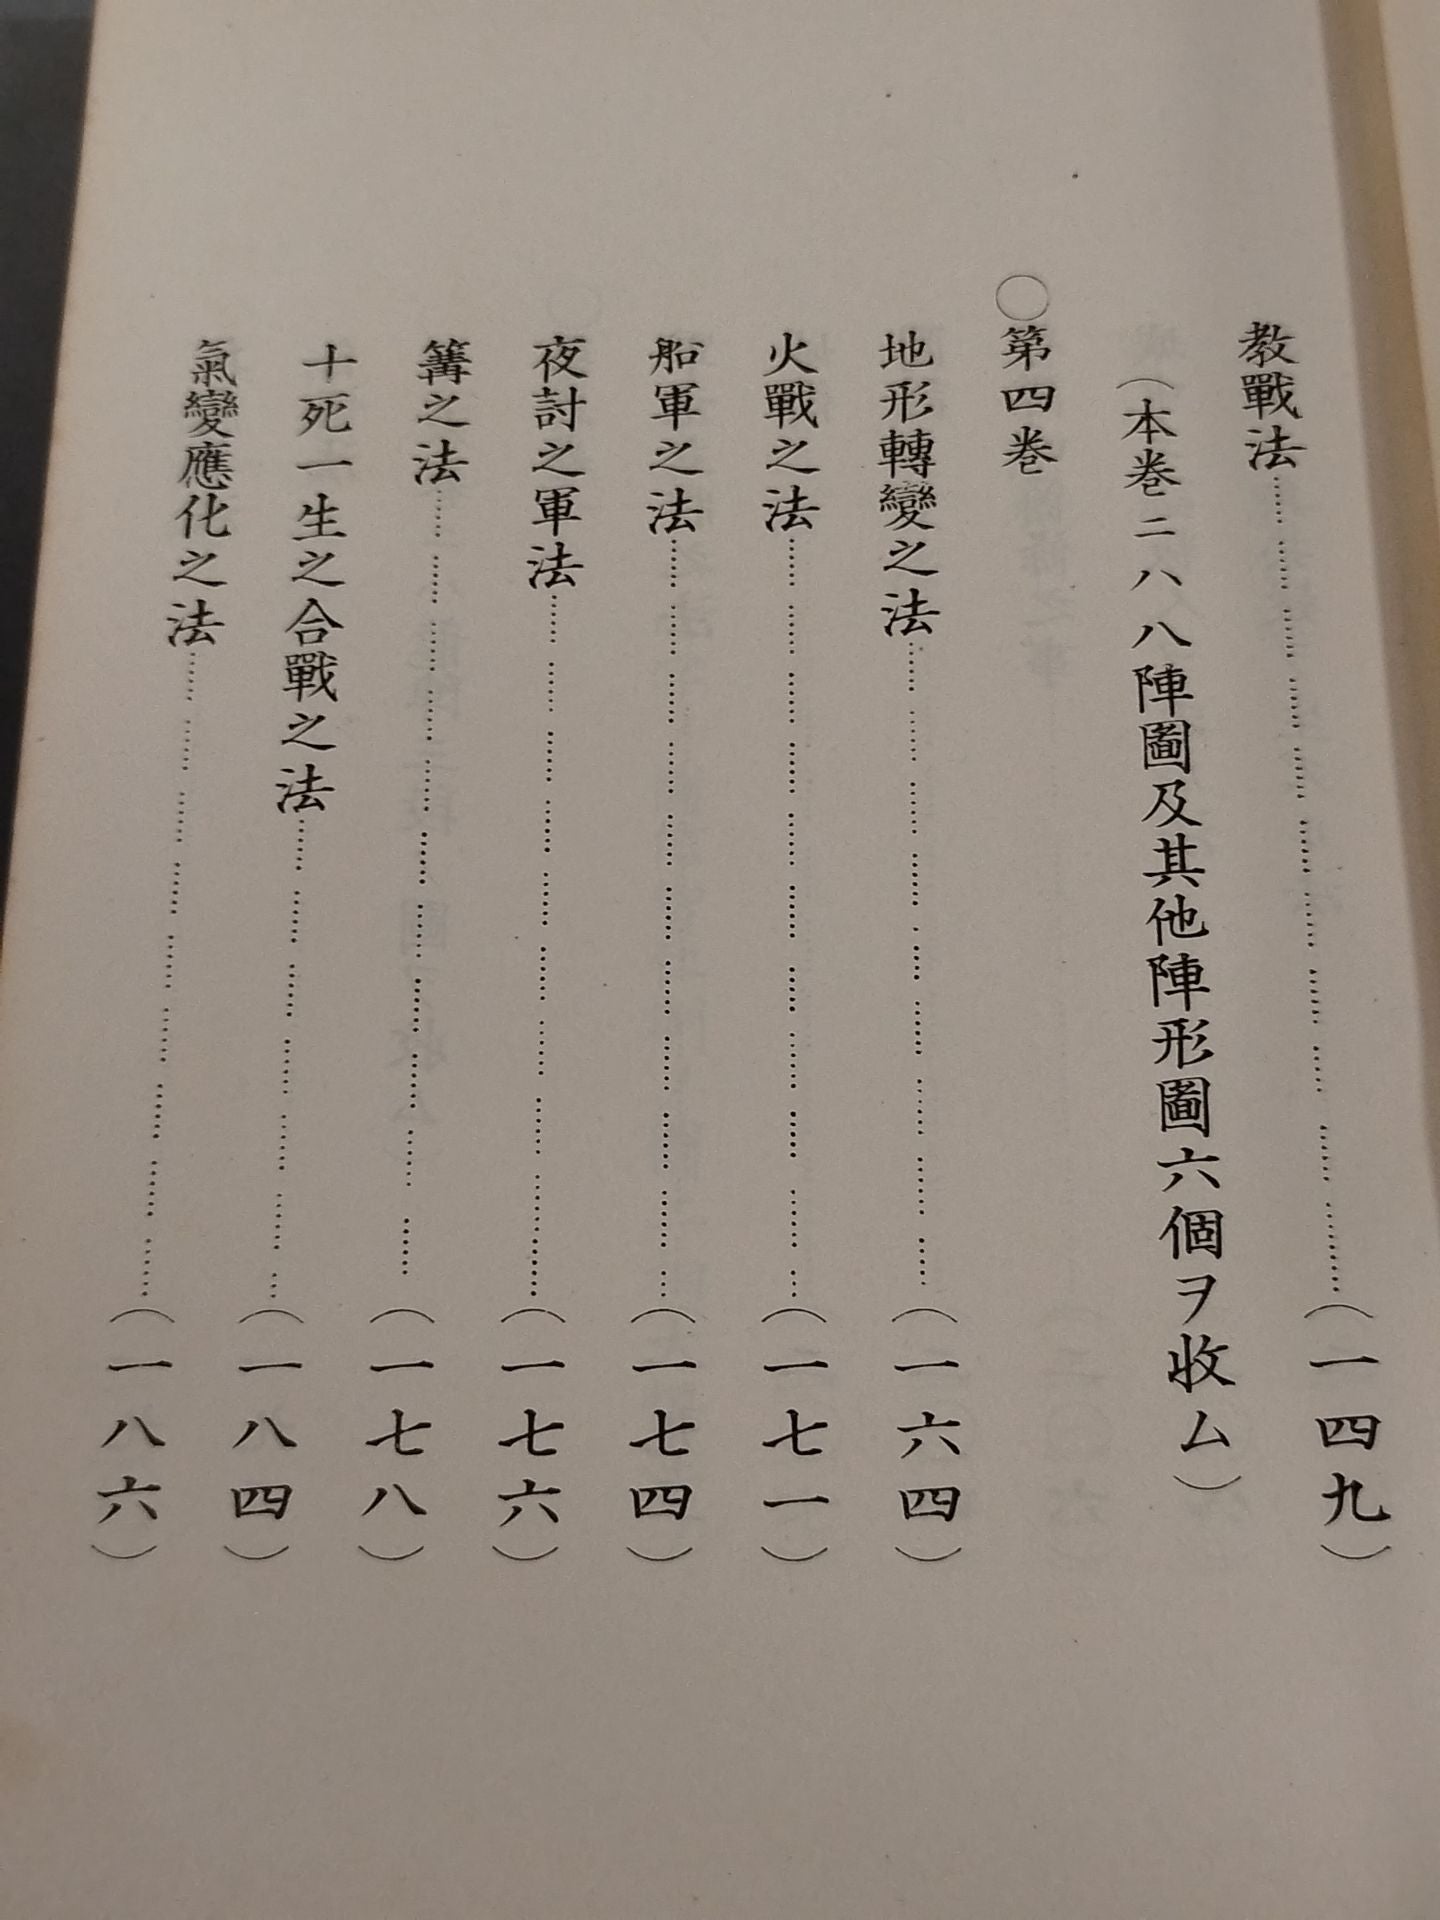 教戰法………………………………（一四九）
（本巻ニハ八陣圖及其他陣形圖六個ヲ收ム）
○第四巻
地形轉變之法………………………（一六四）
火戰之法……………………………（一七一）
船軍之法……………………………（一七四）
夜討之軍法…………………………（一七六）
篝之法………………………………（一七八）
十死一生之合戰之法………………（一八四）
氣變應化之法………………………（一八六）